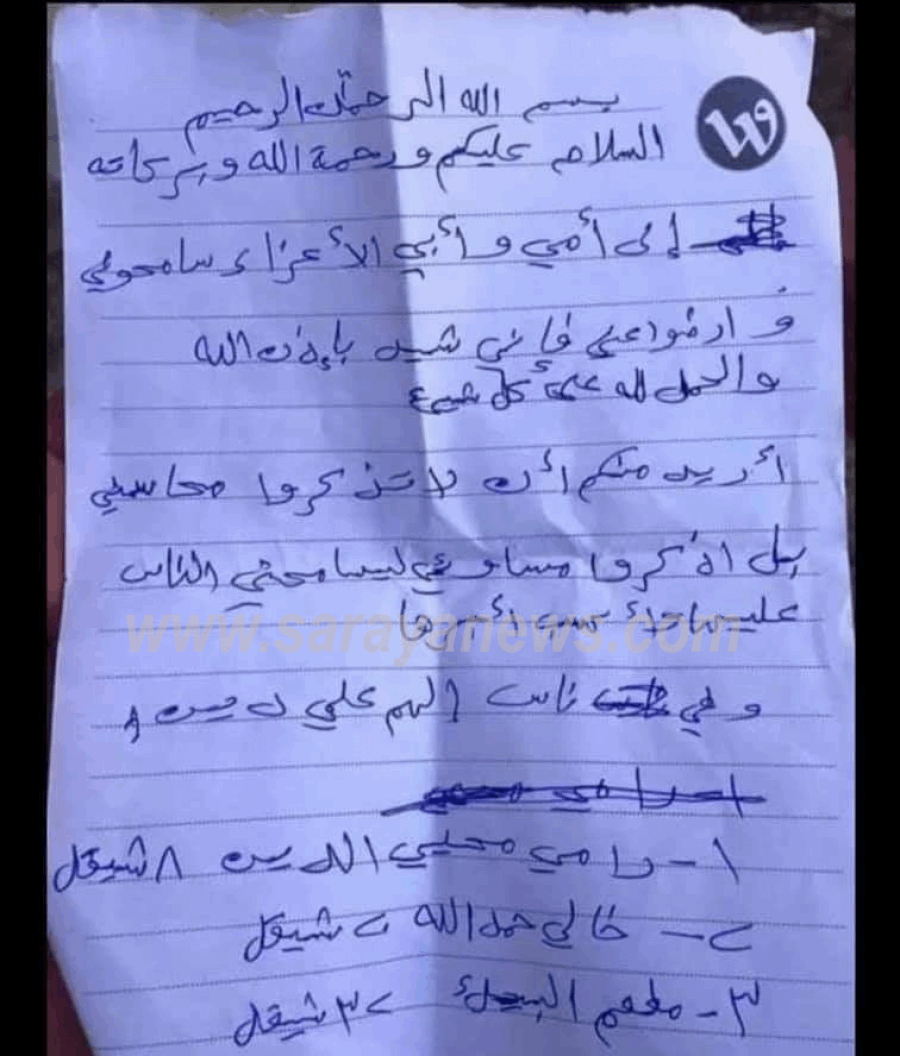 بسم الله الرحمن الرحيم
السلام عليكم ورحمة الله وبركاته
إلى أمي وأبي الأعزاء سامحوني
وارضوا عني فإني شهيد بإذن الله
والحمد لله على كل شيء
أريد منكم أن لا تذكروا محاسني
بل اذكروا مساوئي ليسامحني الناس
عليها
www.sarayanews.com
وفي ناس الهم علي ديون
١- رامي محلي الدين ٨ شيقل
٢- خالي حمد الله ٢ شيقل
٣- مطعم ٢٣ شيقل